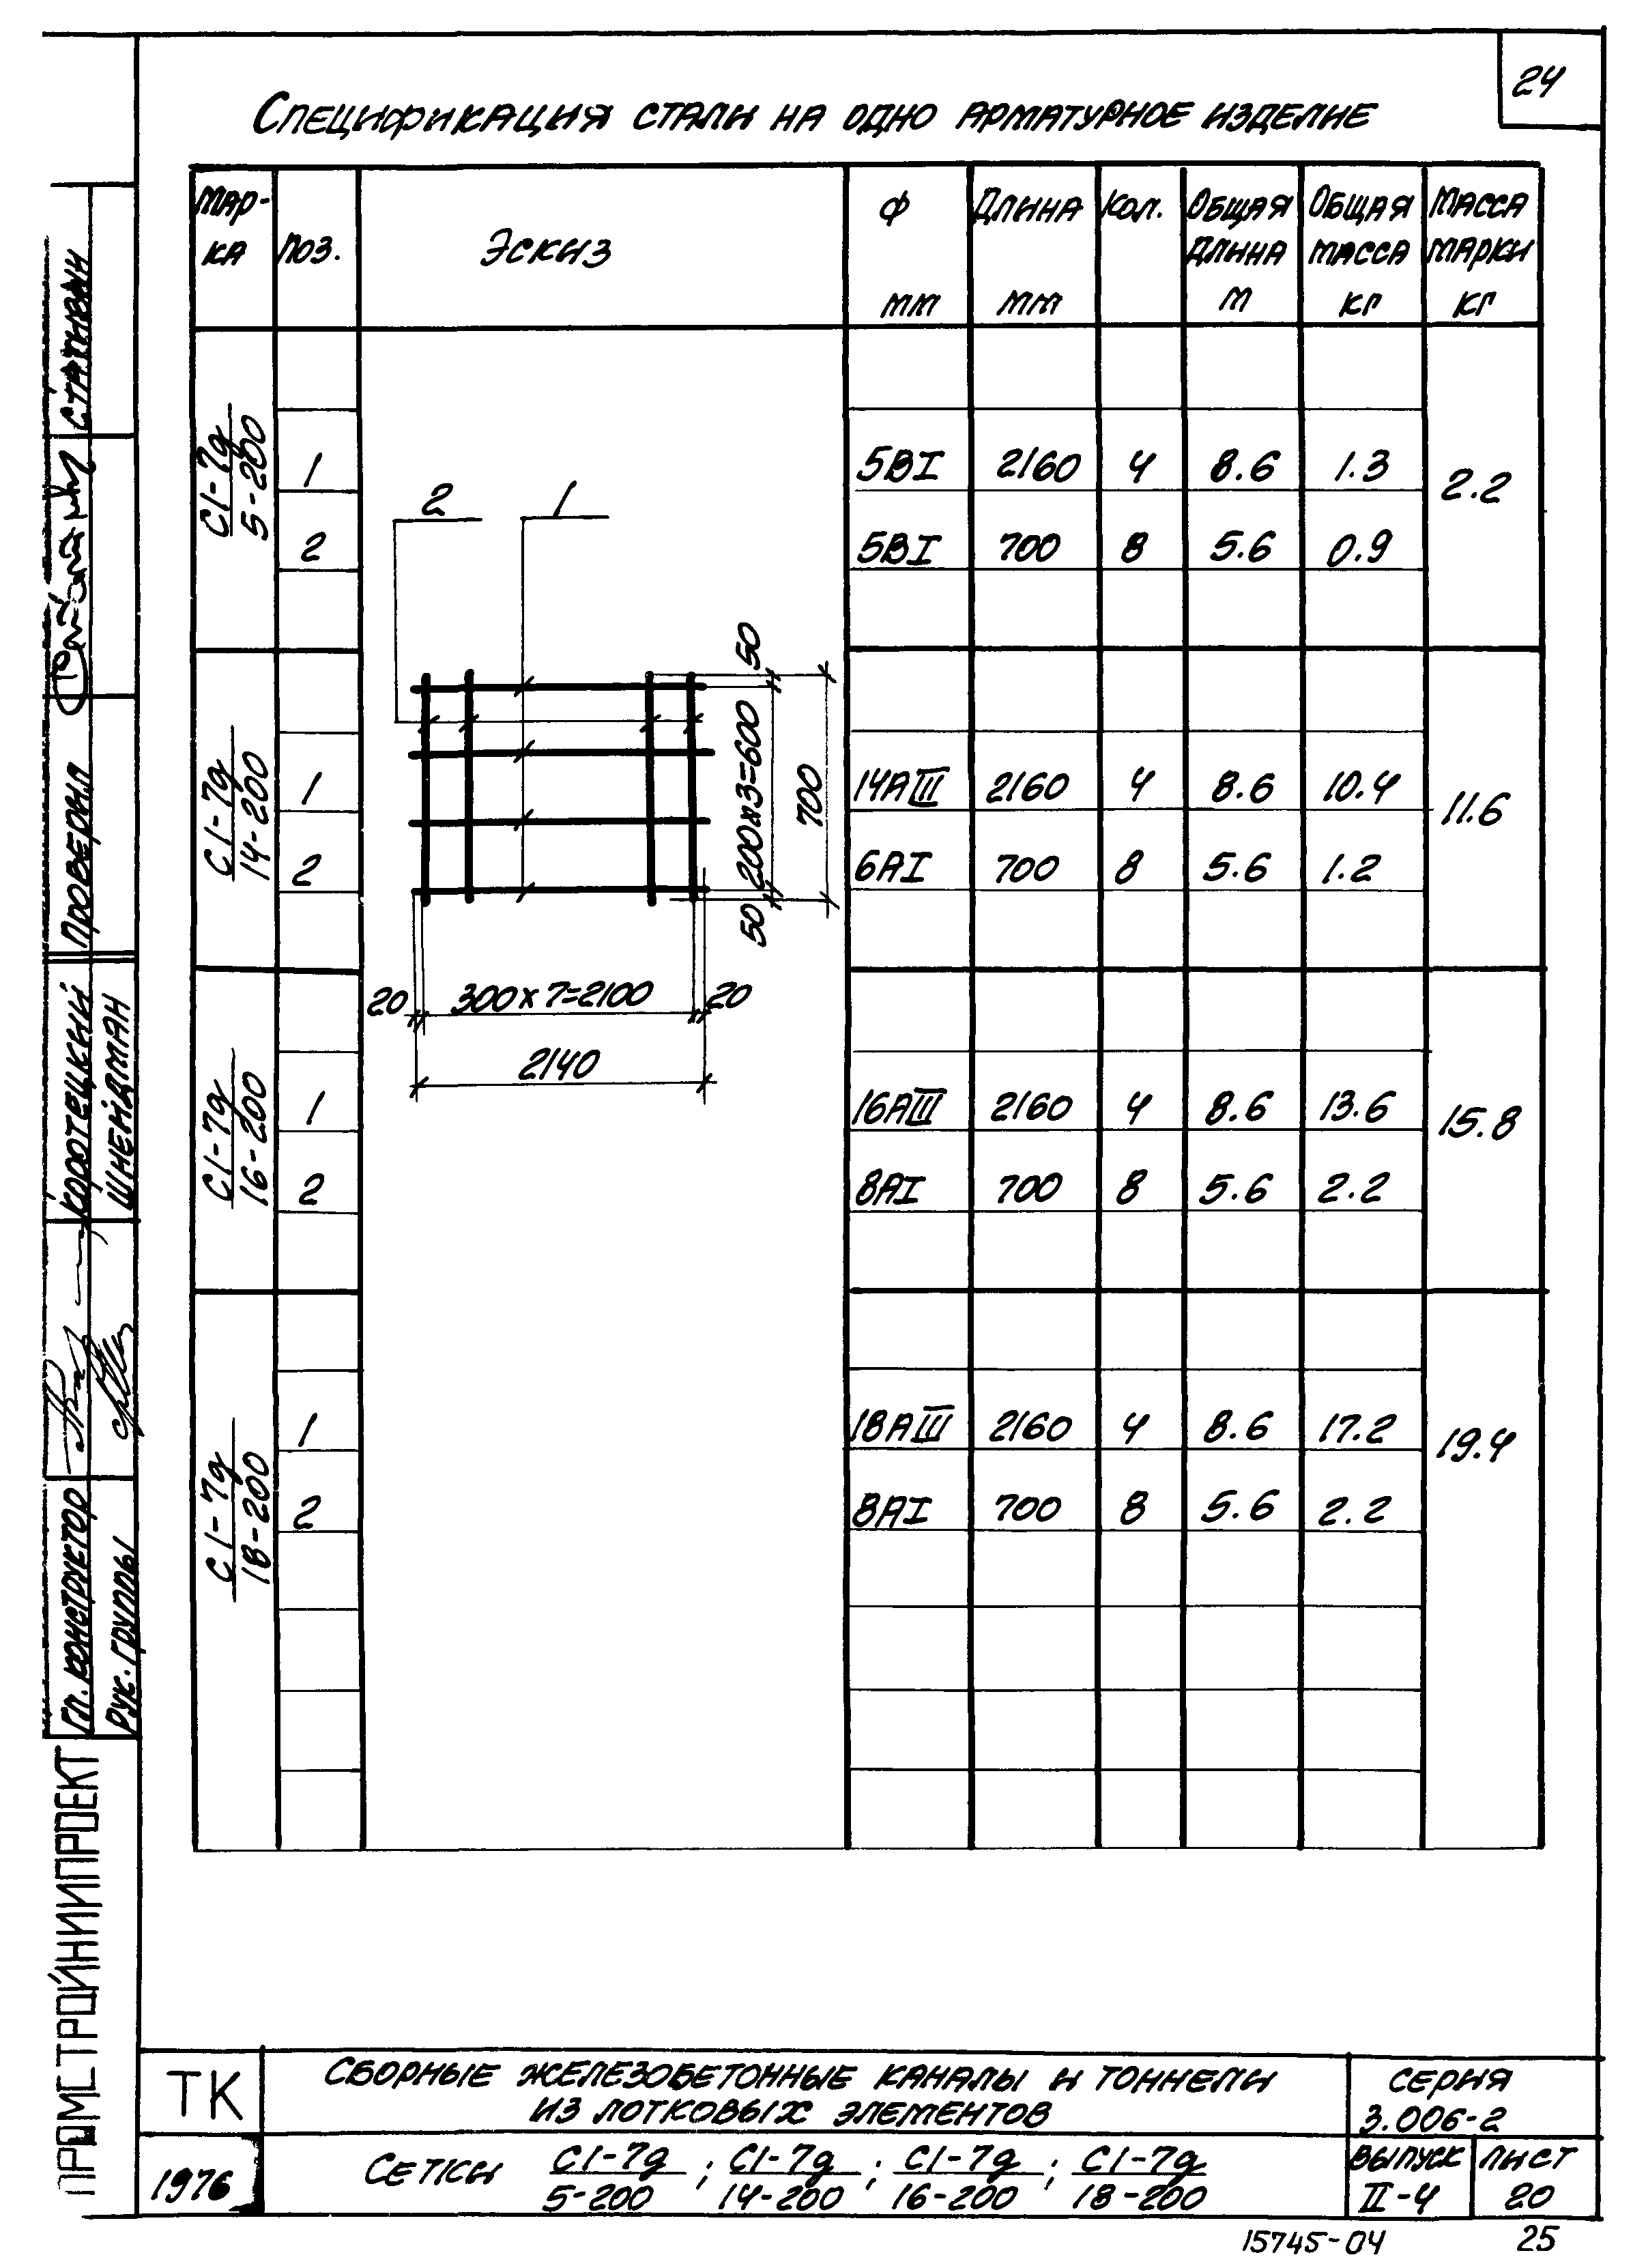 24
Спецификация стали на одно арматурное изделие
Мар-ка Поз. Эскиз Ф мм Длина мм Кол. Общая длина м Общая масса кг Масса марки кг
С1-7д
5-200
1 5ВI 2160 4 8.6 1.3 2.2
2 5ВI 700 8 5.6 0.9
С1-7д
14-200
1 14АIII 2160 4 8.6 10.4 11.6
2 6АI 700 8 5.6 1.2
С1-7д
16-200
1 16АIII 2160 4 8.6 13.6 15.8
2 8АI 700 8 5.6 2.2
С1-7д
18-200
1 18АIII 2160 4 8.6 17.2 19.4
2 8АI 700 8 5.6 2.2
2 1
50
200х3=600
700
50
20 300х7=2100 20
2140
Проверил
Гл. конструктор Коротецкий
Рук. группы Шнейдман
ПРОМСТРОЙНИИПРОЕКТ
ТК
1976
Сборные железобетонные каналы и тоннели
из лотковых элементов
Серия
3.006-2
Сетки С1-7д ; С1-7д ; С1-7д ; С1-7д
5-200 14-200 16-200 18-200
Выпуск Лист
II-4 20
15745-04 25